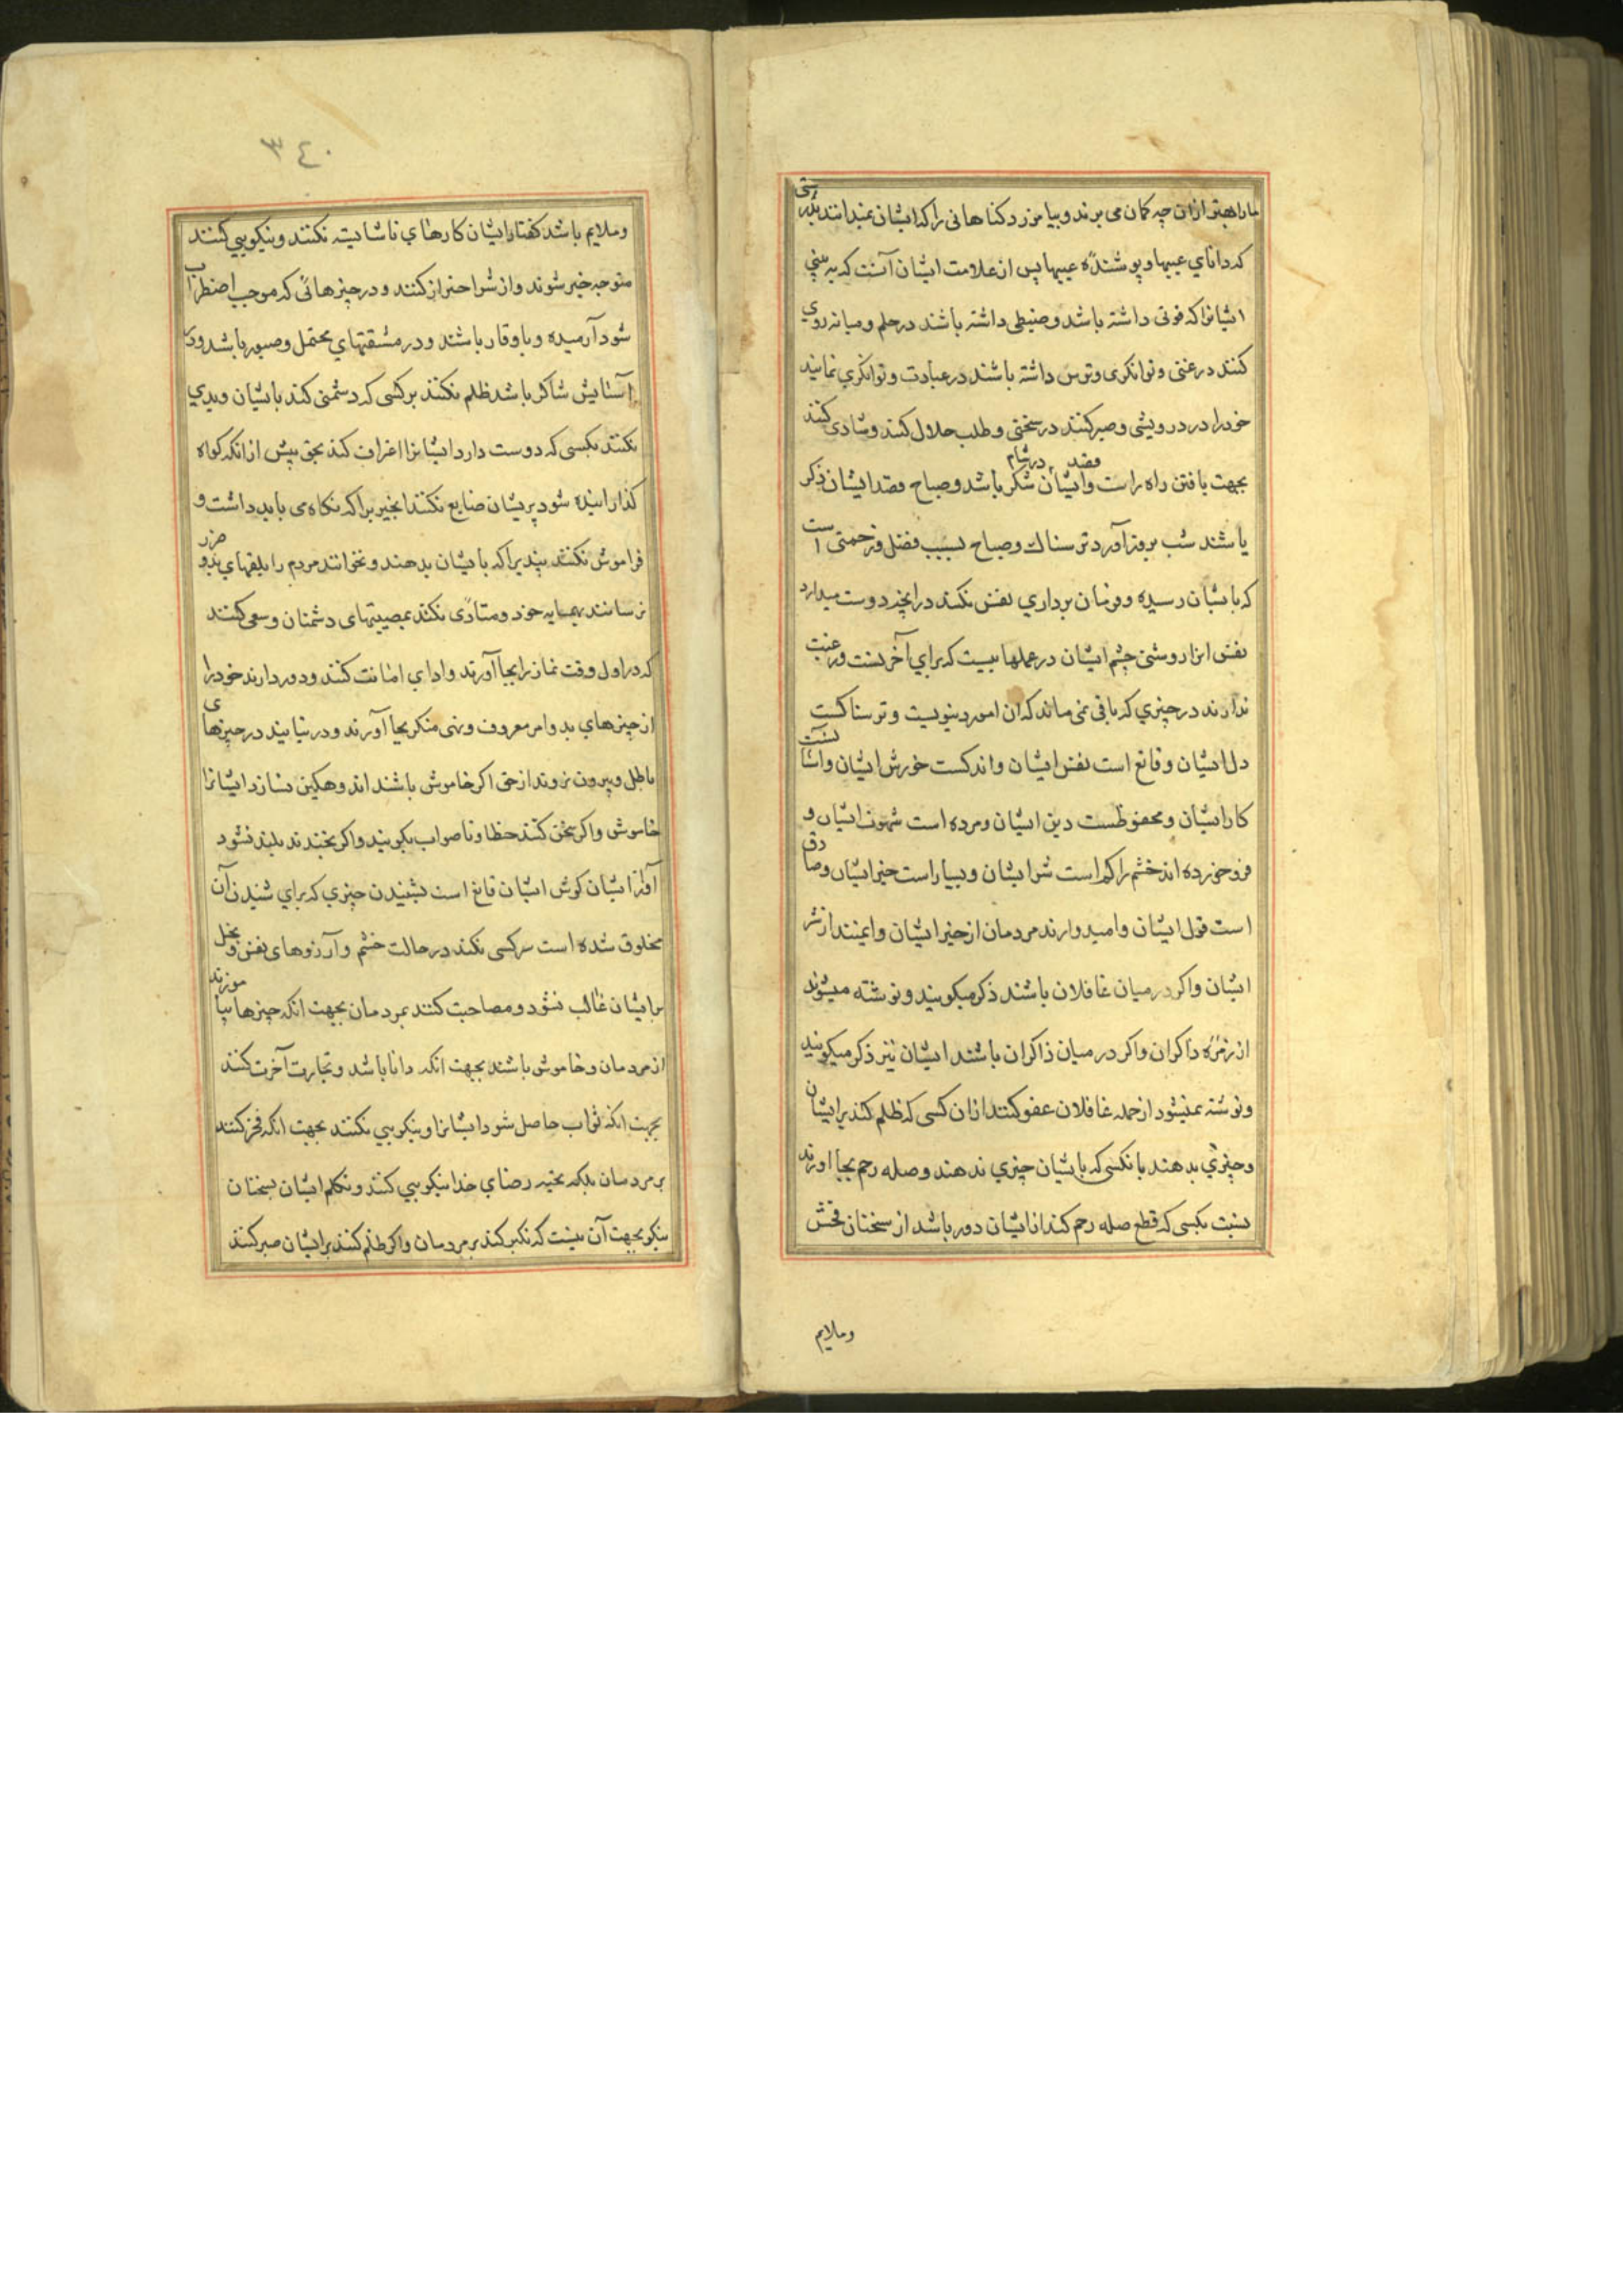 ما را بهتر از آن چه کمان می برند و بیامرزد کناهانی را که ایشان نمیدانند بدرستی
که دانای عیبها و پوشندهٔ عیبها پس از علامت ایشان آنست که به بینی
ایشانرا که قوتی داشته باشد و ضبطی داشته باشند در حلم و میانه روی
کنند در غنی و توانکری و ترس داشته باشند در عبادت و توانکری نمایند
خود را در درویشی و صبر کنند در سختی و طلب حلال کنند و شادی کنند
بجهت یافتن راه راست و قصد ایشان در شام شکر باشد و صباح قصد ایشان ذکر
باشند شب بروز آورد ترسناک و صباح بسبب فضل و رحمتی است
که بایشان رسیده و فرمان برداری نفس نکنند در انچه دوست میدارد
نفس انرا روشنی چشم ایشان در عملها ییست که برای آخرتست و رغبت
ندارند در چیزی که باقی نمی ماند که ان امور دینویست و ترسناکست
دل ایشان و قانع است نفس ایشان و اندکست خورش ایشان و آسانست
کار ایشان و محفوظست دین ایشان و مرده است شهوت ایشان و
فرو خورده اند خشم را کم است شر ایشان و بسیار است خیر ایشان و صادق
است قول ایشان و امیدوارند مردمان از خیر ایشان و ایمنند از شر
ایشان و اکر در میان غافلان باشند ذکر میکویند و نوشته میشوند
از زمرهٔ ذاکران و اکر در میان ذاکران باشند ایشان نیز ذکر میکویند
و نوشته نمیشود از جمله غافلان عفو کنند ازان کسی که ظلم کند برایشان
و چیزی بدهند بانکسی که بایشان چیزی ندهند و صله رحم بجا اورند
نسبت بکسی که قطع صله رحم کند از ایشان دور باشد از سخنان فحش
و ملایم
٣٤٠
و ملایم باشد کفتار ایشان کارهای ناشایسته نکنند و نیکویی کنند
متوجه خیر شوند و از شر احتراز کنند و در چیزهائی که موجب اضطراب
شود آرمیده و با وقار باشند و در مشقتهای محتمل و صبور باشد و در
آسایش شاکر باشد ظلم نکنند بر کسی که دشمنی کند بایشان و بدی
نکنند بکسی که دوست دارد ایشانرا اعتراف کند بحق پیش از انکه کواه
کذارانیده شود بریشان ضایع نکنند انچیزیرا که نکاه می باید داشت و
فراموش نکنند پندیرا که بایشان بدهند و نخوانند مردم را بلقبهای بد و ضرر
نرسانند بهمسایه خود و متأذی نکند بمصیبتهای دشمنان و سعی کنند
که در اول وقت نماز را بجا آورند و ادای امانت کنند و دور دارند خود را
از چیزهای بد و امر معروف و نهی منکر بجا آورند و در نیایند در چیزهای
باطل و بیرون نروند از حق اکر خاموش باشند اندوهکین نسازد ایشانرا
خاموشی و اکر سخن کنند خطا و ناصواب نکویند و اکر بخندند بلند نشود
آواز ایشان کوش ایشان قانع است بشنیدن چیزی که برای شنیدن آن
مخلوق شده است سرکسی نکند در حالت خشم و آرزوهای نفس و بخل
برایشان غالب نشود و مصاحبت کنند بمردمان بجهت انکه چیزها بیاموزند
از مردمان و خاموش باشند بجهت انکه دانا باشد و تجارت آخرت کنند
بجهت انکه ثواب حاصل شود ایشانرا و نیکویی نکنند بجهت انکه فخر کنند
بر مردمان بلکه بجهة رضای خدا نیکویی کنند و تکلم ایشان بسخنان
نیکو بجهت آن نیست که تکبر کند بر مردمان و اکر ظلم کنند برایشان صبر کنند